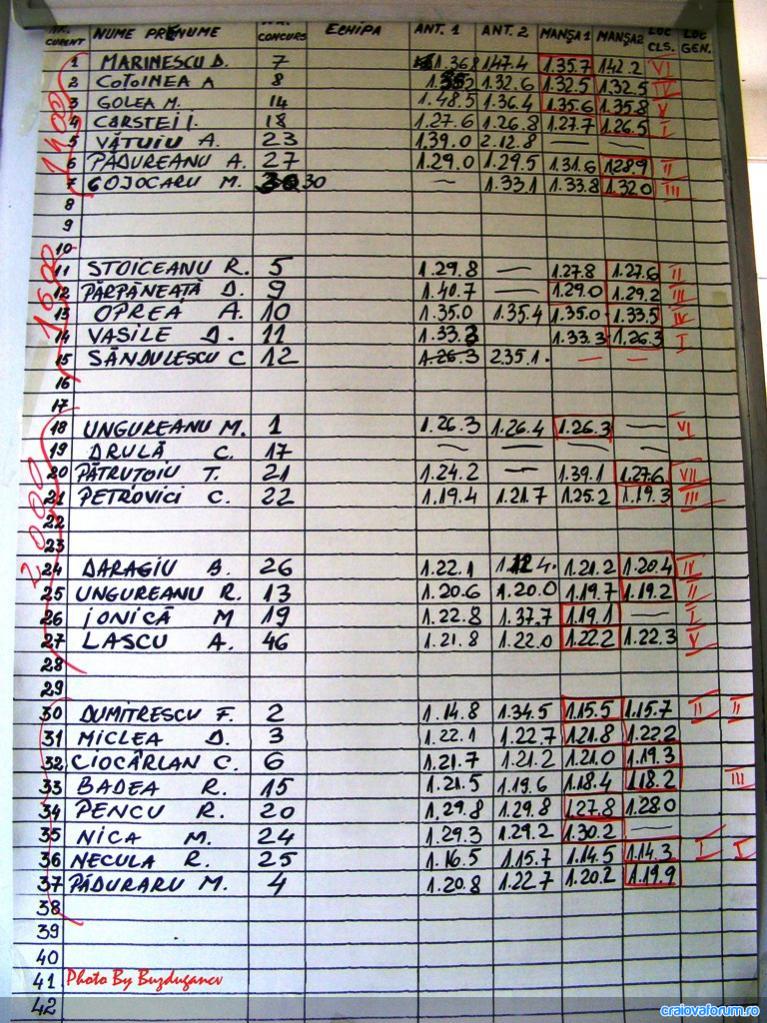 NR. CURENT NUME PRENUME NR. CONCURS ECHIPA ANT. 1 ANT. 2 MANȘA 1 MANȘA 2 LOC CLS. LOC GEN.
1400
1 MARINESCU D. 7 1.36.8 1.47.4 1.35.7 1.42.2 VI
2 COTOINEA A 8 1.32.6 1.32.5 1.32.5 IV
3 GOLEA M. 14 1.48.5 1.36.4 1.35.6 1.35.8 V
4 CARSTEI I. 18 1.27.6 1.26.8 1.27.7 1.26.5 I
5 VĂTUIU A. 23 1.39.0 2.12.8 — —
6 PĂDUREANU A. 27 1.29.0 1.29.5 1.31.6 1.28.9 II
7 COJOCARU M. 30 — 1.33.1 1.33.8 1.32.0 III
8
9
10
1600
11 STOICEANU R. 5 1.29.8 — 1.27.8 1.27.6 II
12 PĂRPĂNEAȚĂ D. 9 1.40.7 — 1.29.0 1.29.2 III
13 OPREA A. 10 1.35.0 1.35.4 1.35.0 1.33.5 IV
14 VASILE D. 11 1.33.3 1.33.3 1.26.3 I
15 SĂNDULESCU C 12 1.26.3 2.35.1. — —
16
17
2000
18 UNGUREANU M. 1 1.26.3 1.26.4 1.26.3 — VI
19 DRULĂ C. 17 — — — —
20 PĂTRUTOIU T. 21 1.24.2 — 1.39.1 1.27.6 VII
21 PETROVICI C. 22 1.19.4 1.21.7 1.25.2 1.19.3 III
22
23
24 DARAGIU B. 26 1.22.1 1.21.2 1.20.4 IV
25 UNGUREANU R. 13 1.20.6 1.20.0 1.19.7 1.19.2 II
26 IONICĂ M 19 1.22.8 1.37.7 1.19.1 — I
27 LASCU A. 46 1.21.8 1.22.0 1.22.2 1.22.3 V
28
29
30 DUMITRESCU F. 2 1.14.8 1.34.5 1.15.5 1.15.7 II II
31 MICLEA D. 3 1.22.1 1.22.7 1.21.8 1.22.2
32 CIOCÂRLAN C. 6 1.21.7 1.21.2 1.21.0 1.19.3
33 BADEA R. 15 1.21.5 1.19.6 1.18.4 1.18.2 III
34 PENCU R. 20 1.29.8 1.29.8 1.27.8 1.28.0
35 NICA M. 24 1.29.3 1.29.2 1.30.2 —
36 NECULA R. 25 1.16.5 1.15.7 1.14.5 1.14.3 I I
37 PĂDURARU M. 4 1.20.8 1.22.7 1.20.2 1.19.9
38
39
40
41 Photo By Buzdugancv
42
craiovaforum.ro